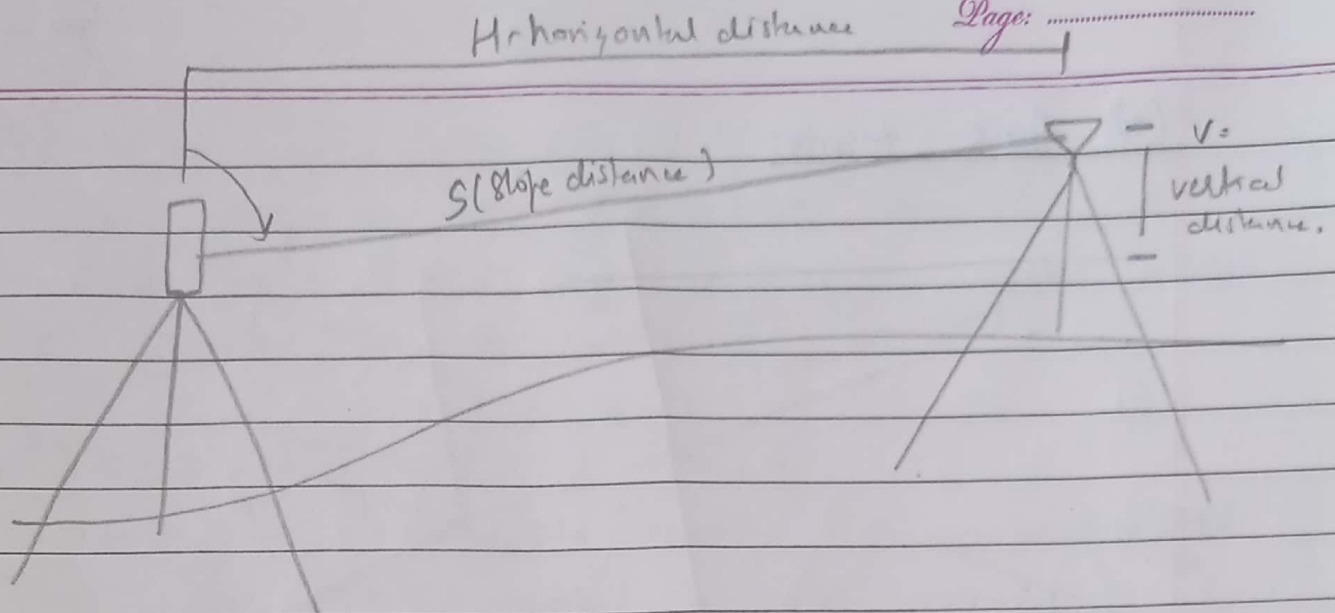 Page: ....................
H-horizontal distance
S(Slope distance)
V=
vertical
distance.